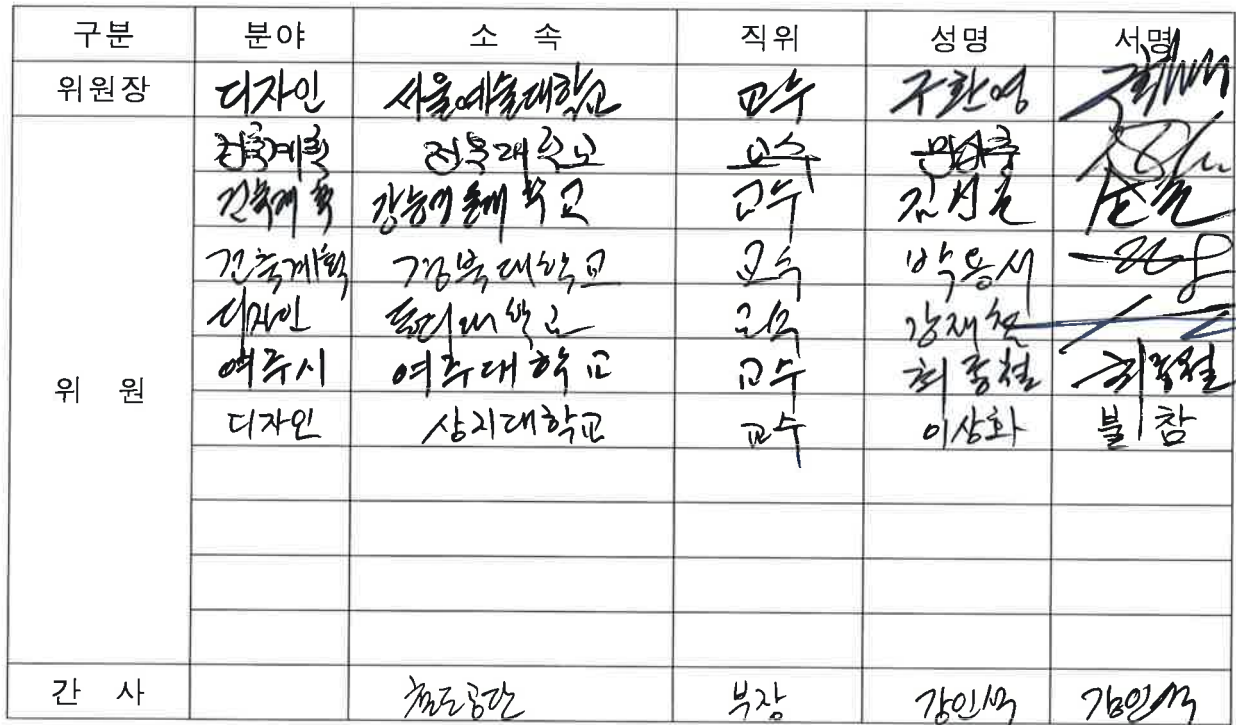 구분 분야 소 속 직위 성명 서명
위원장 디자인 서울예술대학교 교수 구환영
건축계획 전북대학교 교수
건축계획 강릉 대학교 교수 김
건축계획 경북대학교 교수 박용서
디자인 대학교 교수 강재철
여주시 여주대학교 교수 최종철 최종철
위 원
디자인 상지대학교 교수 이상화 불참
간 사 철도공단 부장 강인석 강인석